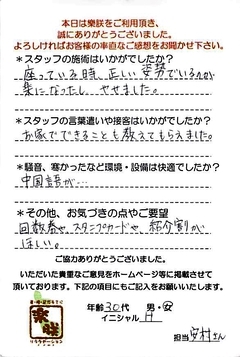 本日は楽朕をご利用頂き、
誠にありがとうございます。
よろしければお客様の率直なご感想をお聞かせ下さい。
*スタッフの施術はいかがでしたか?
座っている時、正しい姿勢でいるのが
楽になったし、やせました。
*スタッフの言葉遣いや接客はいかがでしたか?
お家でできることも教えてもらえました。
*騒音、寒かったなど環境・設備は快適でしたか?
中国語が…
*その他、お気づきの点やご要望
回数券や、スタンプカードや、紹介割が
ほしい。
ご協力ありがとうございました。
いただいた貴重なご意見をホームページ等に掲載させて
頂いております。下記の項目にもご記入をお願いいたします。
楽朕
リラクゼーション
年齢 30代 男・女
イニシャル H
担当 安村さん